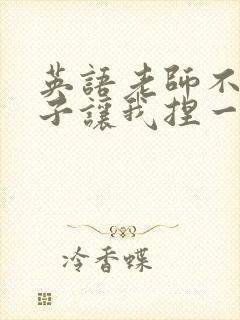 英語老師不
子讓我捏一
冷香蝶